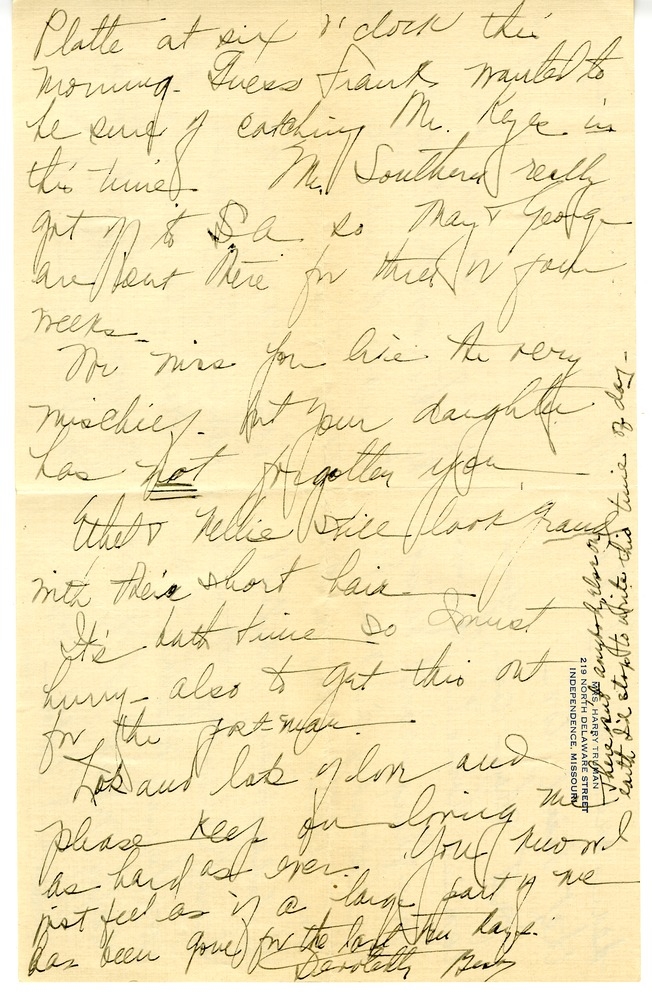 Platte at six o'clock this
morning. Guess Frank wanted to
be sure of catching Mr. Keyes in
this time. Mr. Southern really
got off to S.A. so May & George
are out there for three or four
weeks.
We miss you like the very
mischief. But your daughter
has not forgotten you.
Ethel & Nellie still look grand
with their short hair.
It's bath time so I must
hurry - also to get this out
for the post-man.
Lots and lots of love and
please keep on loving me
as hard as ever. You know I
just feel as if a large part of me
has been gone for the last ten days.
Devotedly Bess
There isn't anybody else on
earth I'd stop to write this time of day -
MRS. HARRY TRUMAN
219 NORTH DELAWARE STREET
INDEPENDENCE, MISSOURI